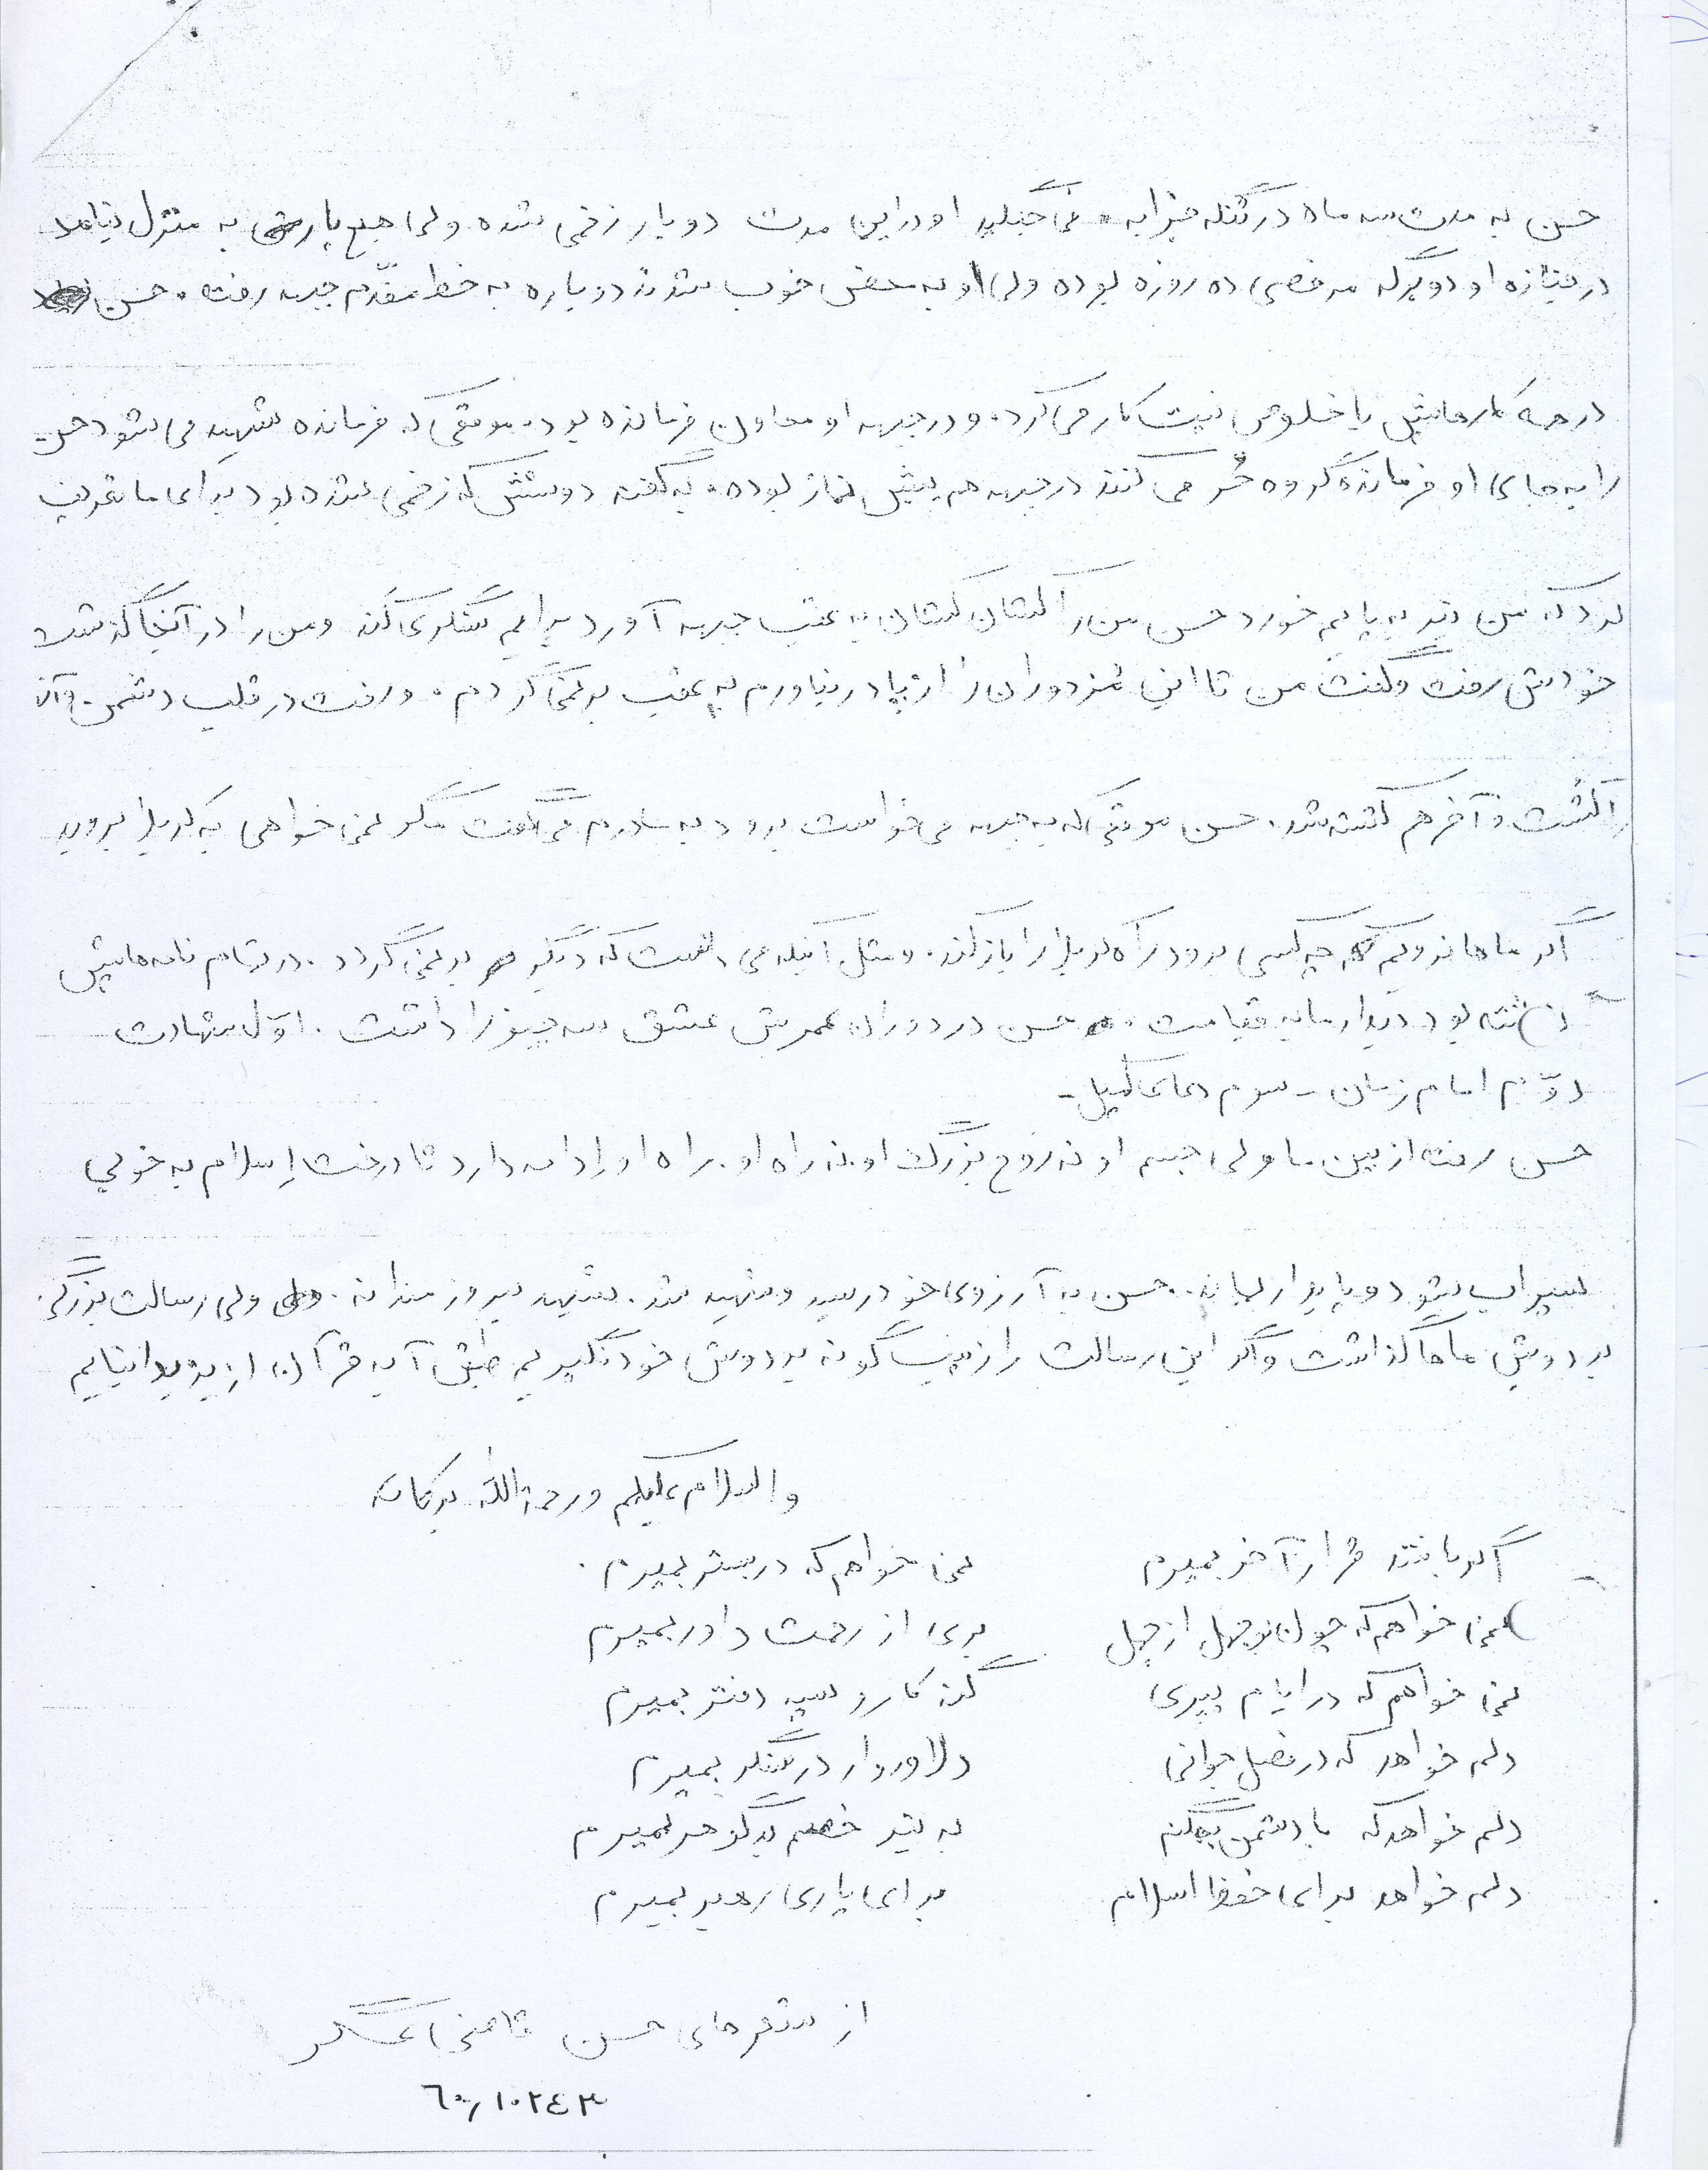 حسن به مدت سه ماه در تنگه چزابه می جنگید او در این مدت دو بار زخمی شده ولی هیچ به منزل نیامد
در جنازه او دو برگه مرخصی ده روزه بوده ولی او به محض خوب شدن دوباره به خط مقدّم جبهه رفت. حسن
در همه کارهایش با خلوص نیت کار می کرد. و در جبهه او معاون فرمانده بود. موقعی که فرمانده شهید می شود حسن
را به جای او فرمانده گروه حُر می کنند در جبهه هم پیش نماز بوده. به گفته دوستش که زخمی شده بود برای ما تعریف
کرد که من تیر به پایم خورد حسن من را کشان کشان به عقب جبهه آورد برایم سنگری کند و من را در آنجا گذاشت
خودش رفت و گفت من تا این مزدوران را از پا در نیاورم به عقب برنمی گردم. و رفت در قلب دشمن و آنا
را کُشت و آخر هم کشته شد. حسن موقعی که به جبهه می خواست برود به مادرم می گفت مگر نمی خواهی به کربلا بروید
اگر ماها نرویم چه کسی برود راه کربلا را باز کند. و مثل اینکه می دانست که دیگر بر نمی گردد. در تمام نامه هایش
نوشته بود دیدار ما به قیامت. حسن در دوران عمرش عشق سه چیز را داشت. اوّل شهادت
دوّم امام زمان - سوم دعای کمیل -
حسن رفت از بین ما ولی جسم او نه روح بزرگ او نه راه او. راه او ادامه دارد تا درخت اسلام به خوبی
سیراب شود و پایدار بماند. حسن به آرزوی خود رسید و شهید شد. شهید پیروزمندانه. ولی رسالت بزرگی
بر دوش ماها گذاشت و اگر این رسالت را زینب گونه بر دوش خود نگیریم طبق آیه قرآن از یزیدیانیم
والسلام علیکم و رحمة الله برکاته
اگر باشد قرار آخر بمیرم نمی خواهم که در بستر بمیرم.
نمی خواهم که چون بوجهل از جهل بری از رحمت داور بمیرم
نمی خواهم که در ایام پیری گنه کار و سیه دفتر بمیرم
دلم خواهد که در فصل جوانی دلاوروار در سنگر بمیرم
دلم خواهد که با دشمن بجنگم به تیر خصم بد گوهر بمیرم
دلم خواهد برای حفظ اسلام برای یاری رهبر بمیرم
از شعرهای حسن قاضی عسگر
٦٠/١٠٢٤٣